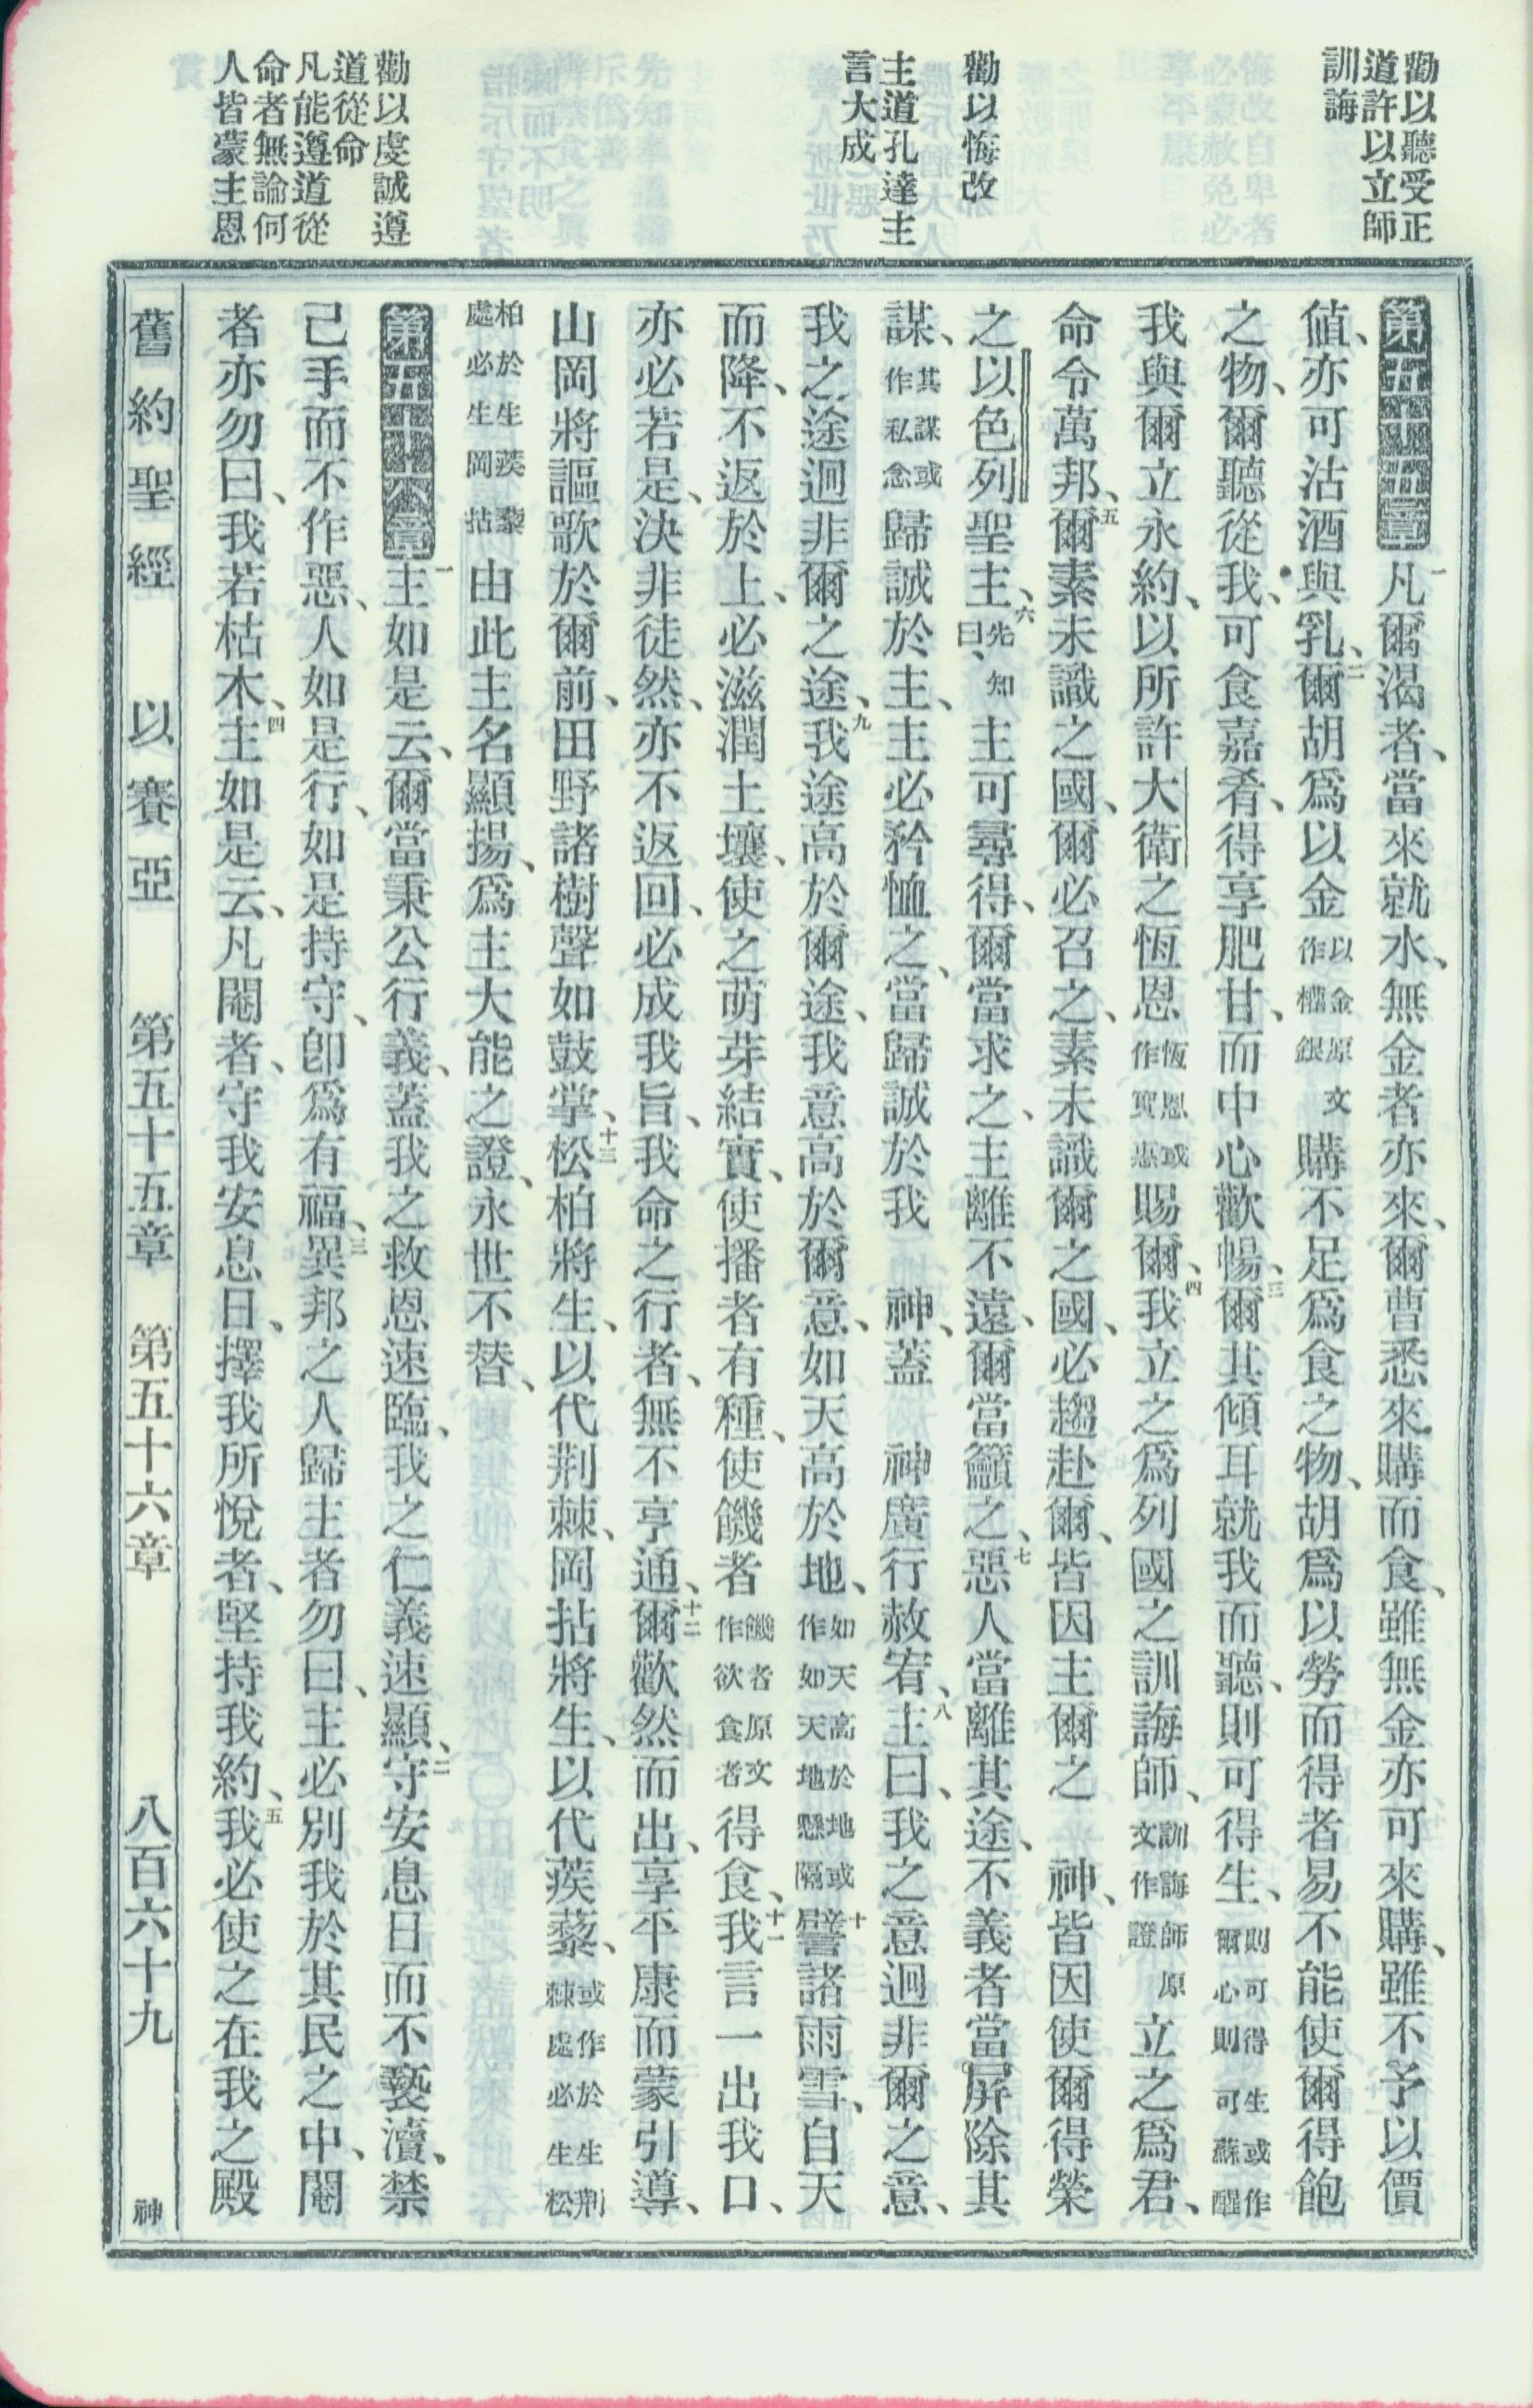 勸以聽受正
道許以立師
訓誨
勸以悔改
主道孔達主
言大成
勸以虔誠遵
道從命
凡能遵道從
命者無論何
人皆蒙主恩
第五十五章一凡爾渴者、當來就水、無金者亦來、爾曹悉來購而食、雖無金亦可來購、雖不予以價
値、亦可沽酒與乳、二爾胡爲以金以金原文作權銀購不足爲食之物、胡爲以勞而得者易不能使爾得飽
之物、爾聽從我、可食嘉肴、得享肥甘、而中心歡暢、三爾其傾耳就我而聽、則可得生、則可得生或作爾心則可蘇醒
我與爾立永約、以所許大衛之恆恩恆恩或作實惠賜爾、四我立之爲列國之訓誨師、訓誨師原文作證立之爲君、
命令萬邦、五爾素未識之國、爾必召之、素未識爾之國、必趨赴爾、皆因主爾之神、皆因使爾得榮
之以色列聖主、六先知曰、主可尋得、爾當求之、主離不遠、爾當籲之、七惡人當離其途、不義者當屏除其
謀、其謀或作私念歸誠於主、主必矜恤之、當歸誠於我神、蓋神廣行赦宥、八主曰、我之意迥非爾之意、
我之途迥非爾之途、九我途高於爾途、我意高於爾意、如天高於地、如天高於地或作如天地懸隔十譬諸雨雪、自天
而降、不返於上、必滋潤土壤、使之萌芽結實、使播者有種、使饑者饑者原文作欲食者得食、十一我言一出我口、
亦必若是、決非徒然、亦不返回、必成我旨、我命之行者、無不亨通、十二爾歡然而出、享平康而蒙引導、
山岡將謳歌於爾前、田野諸樹聲如鼓掌、十三松柏將生、以代荆棘、岡拈將生、以代蒺藜、或作於生荆棘處必生松
柏於生蒺藜處必生岡拈由此主名顯揚、爲主大能之證、永世不替、
第五十六章一主如是云、爾當秉公行義、蓋我之救恩速臨、我之仁義速顯、二守安息日而不褻瀆、禁
己手而不作惡、人如是行、如是持守、卽爲有福、三異邦之人歸主者勿曰、主必別我於其民之中、閹
者亦勿曰、我若枯木、四主如是云、凡閹者、守我安息日、擇我所悅者、堅持我約、五我必使之在我之殿
舊約聖經 以賽亞 第五十五章 第五十六章 八百六十九 神